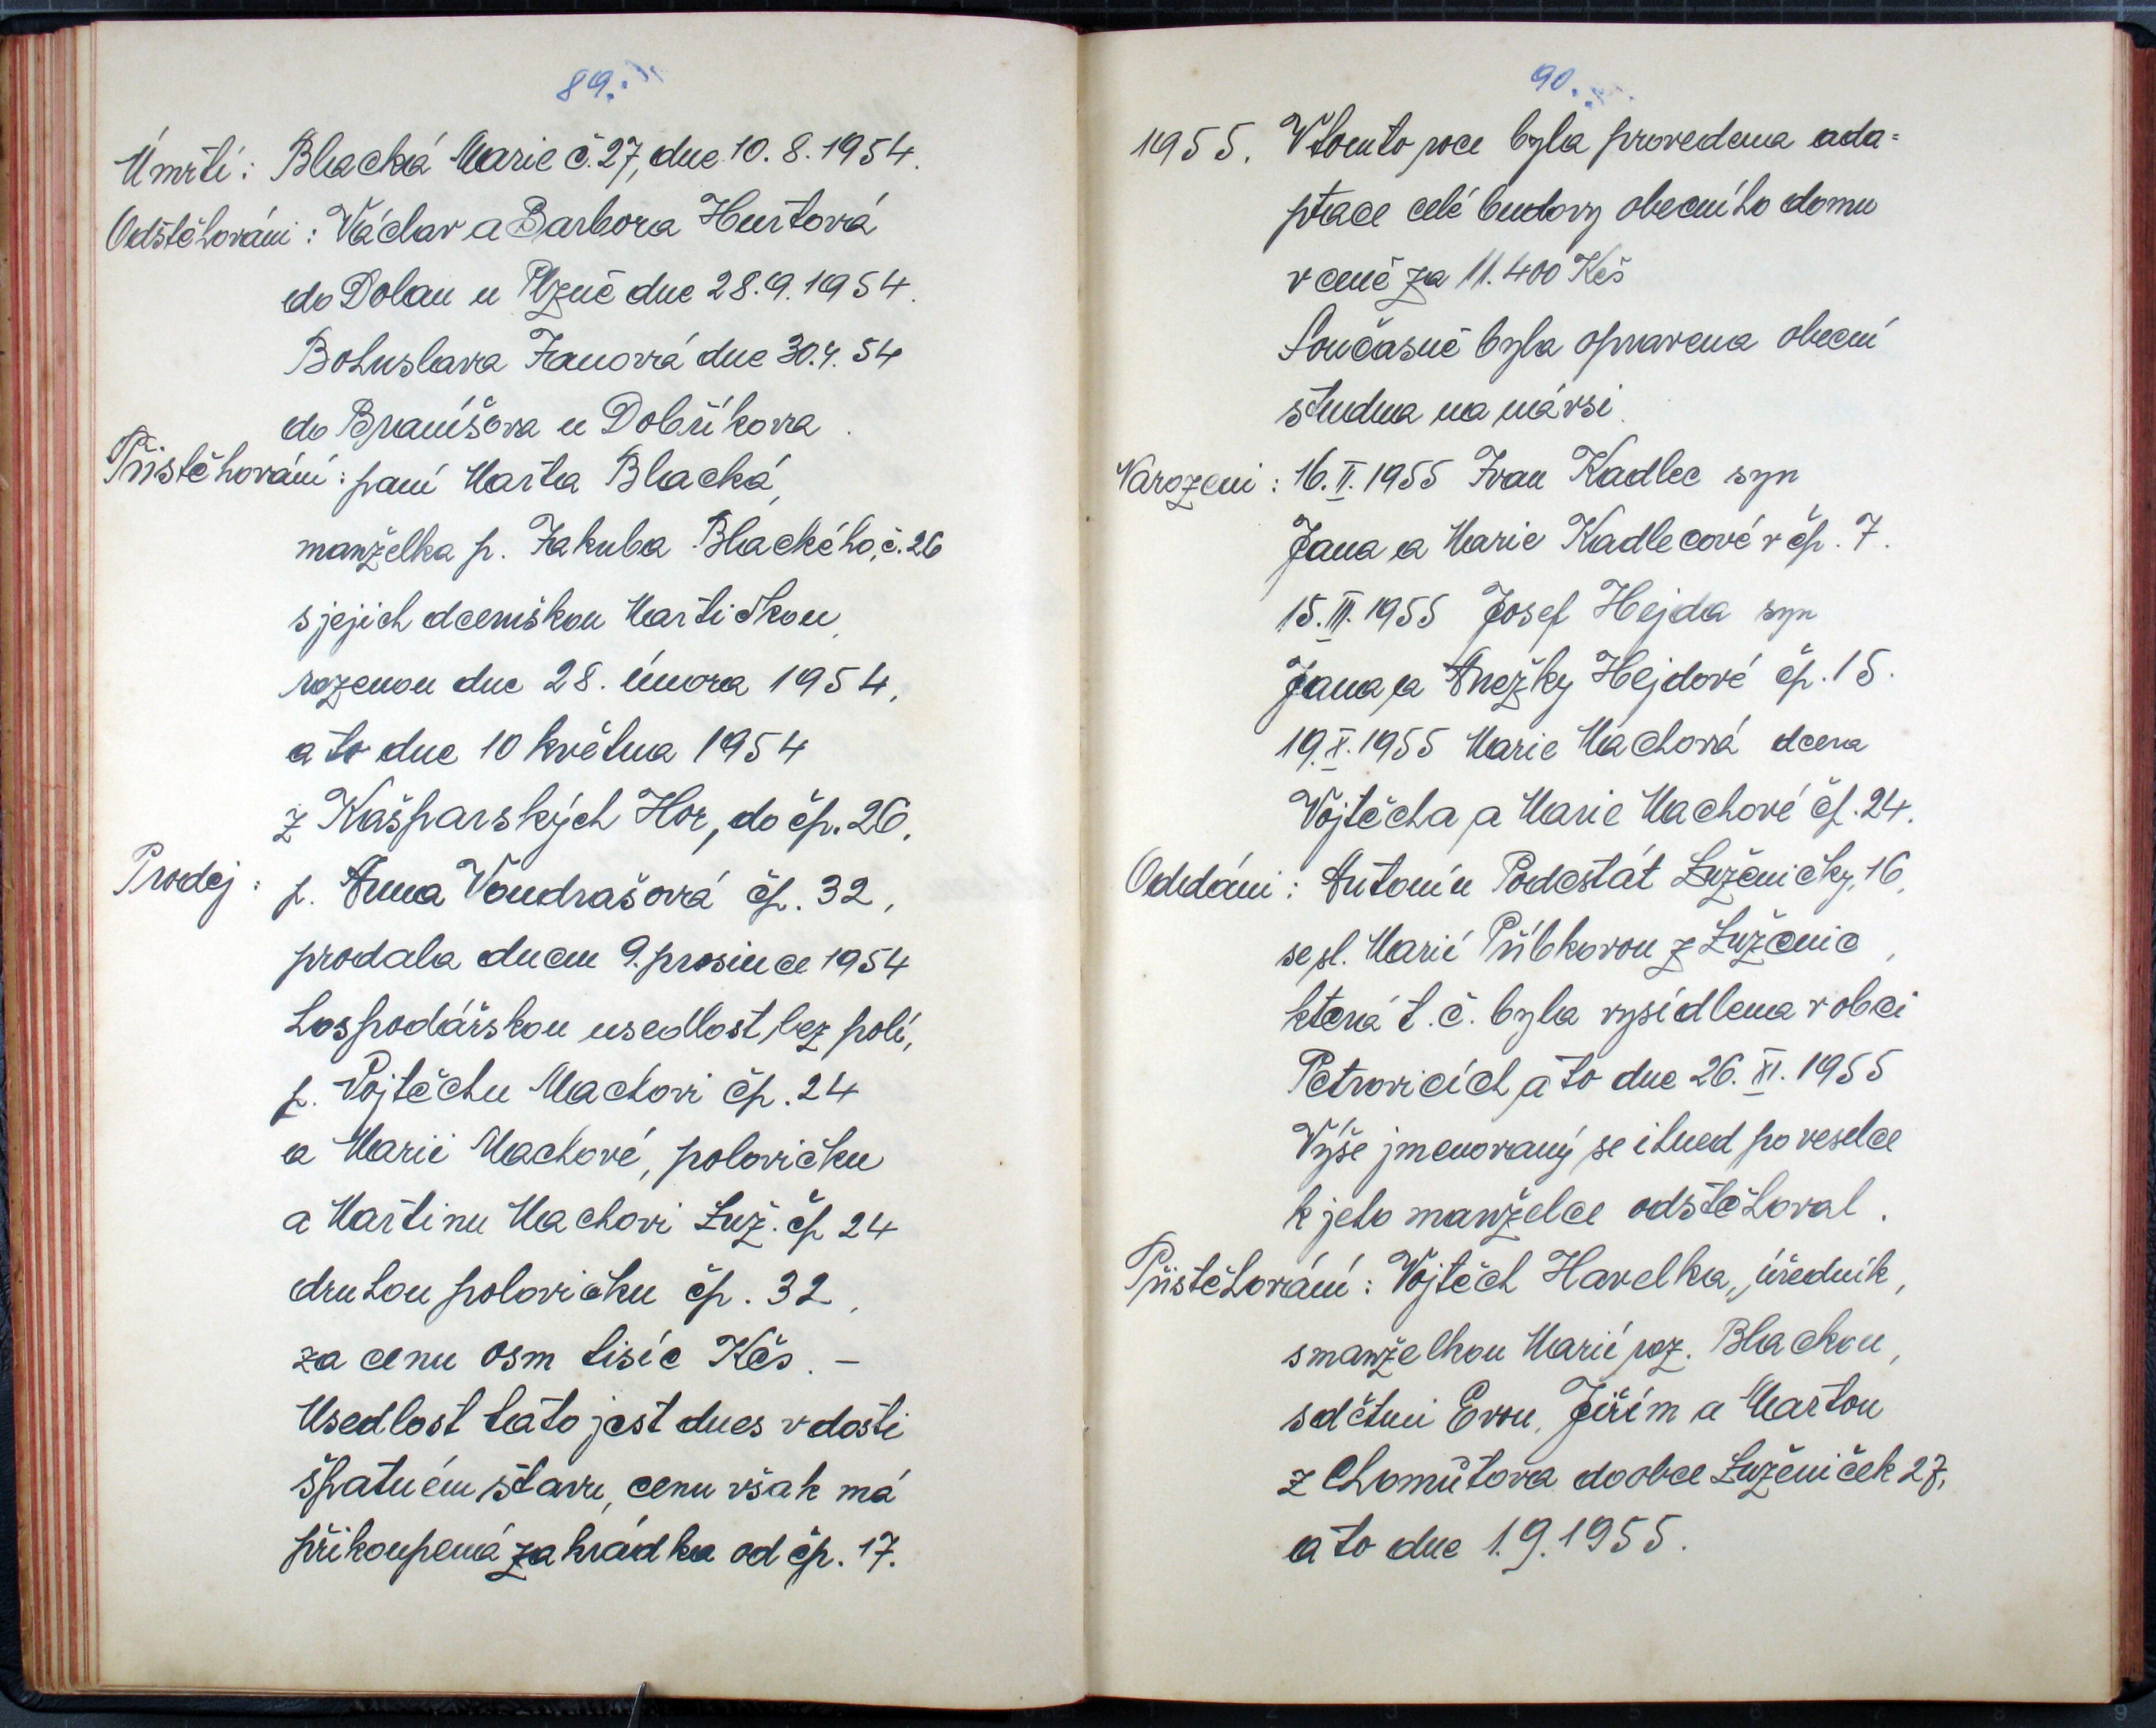 89.
Úmrtí: Blacká Marie č. 27, dne 10. 8. 1954.
Odstěhováni: Václav a Barbora Hurtová
do Dolan u Plzně dne 28. 9. 1954.
Bohuslava Janová dne 30. 4. 54
do Branišova u Dobříkova.
Přistěhování: paní Marta Blacká,
manželka p. Jakuba Blackého, č. 26
s jejich dceruškou Martičkou,
rozenou dne 28. února 1954,
a to dne 10 května 1954
z Kašparských Hor, do čp. 26.
Prodej: p. Anna Vondrašová čp. 32,
prodala dnem 9. prosince 1954
hospodářskou usedlost bez polí,
p. Vojtěchu Machovi čp. 24
a Marii Machové, polovičku
a Martinu Machovi Luž. čp 24
druhou polovičku čp. 32,
za cenu osm tisíc Kčs. –
Usedlost tato jest dnes v dosti
špatném stavu, cenu však má
přikoupená zahrádka od čp. 17.
90.
1955. V tomto roce byla provedena ada=
ptace celé budovy obecního domu
v ceně za 11.400 Kčs
Současně byla opravena obecní
studna na návsi.
Narozeni: 16. II. 1955 Ivan Kadlec syn
Jana a Marie Kadlecové v čp. 7.
15. III. 1955 Josef Hejda syn
Jana a Anežky Hejdové čp. 15.
19. X. 1955 Marie Machová dcera
Vojtěcha a Marie Machové čp. 24.
Oddáni: Antonín Podestát Luženičky, 16,
se sl. Marií Přibkovou z Luženic,
která t. č. byla vysídlena v obci
Petrovicích a to dne 26. XI. 1955
Výše jmenovaný se ihned po veselce
k jeho manželce odstěhoval.
Přistěhování: Vojtěch Havelka, úředník,
s manželkou Marií roz. Blackou,
s dětmi Evou, Jiřím a Martou
z Chomůtova do obce Luženiček 27,
a to dne 1. 9. 1955.